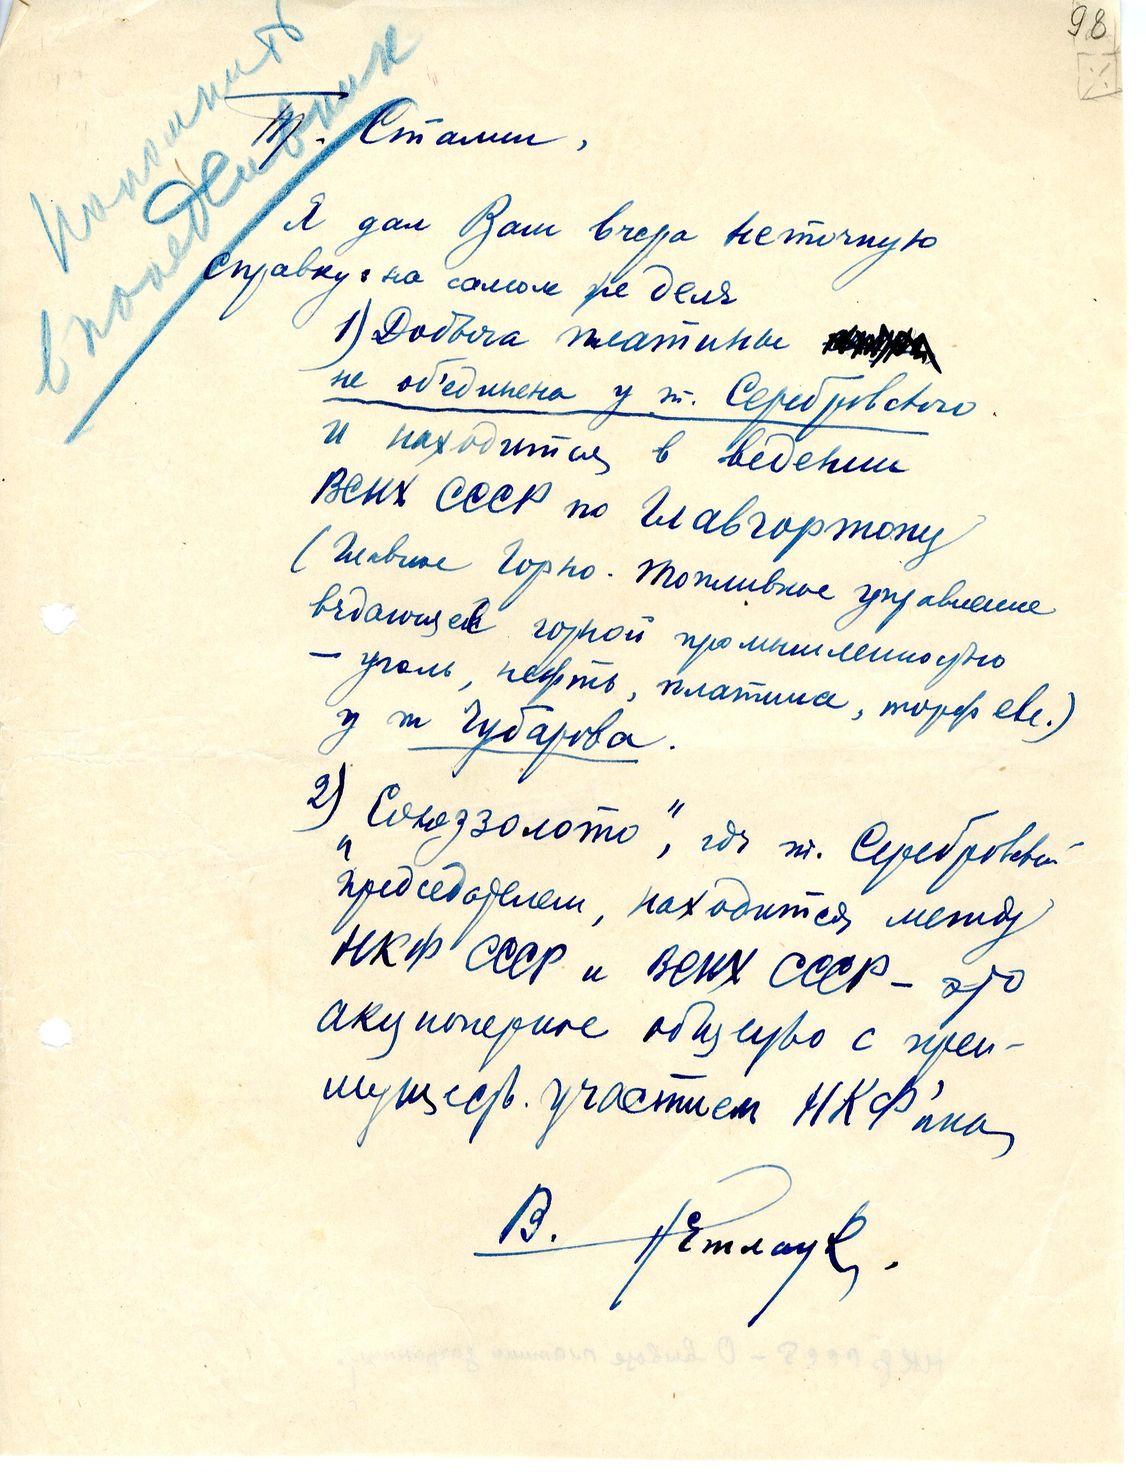 98
Напомнить
в понедельник
Т. Сталин,
Я дал Вам вчера неточную
справку: на самом же деле
1) Добыча платины
не об'единена у т. Серебровского
и находится в ведении
ВСНХ СССР по Главгортопу
(Главное Горно-Топливное управление
ведающее горной промышленностью
– уголь, нефть, платина, торф etc.)
у т Чубарова.
2) „Союззолото", где т. Серебровский
председателем, находится между
НКФ СССР и ВСНХ СССР – это
акционерное общество с преи-
муществ. участием НКФ'ина
В.
НКФ СССР – О вывозе платины заграницу.